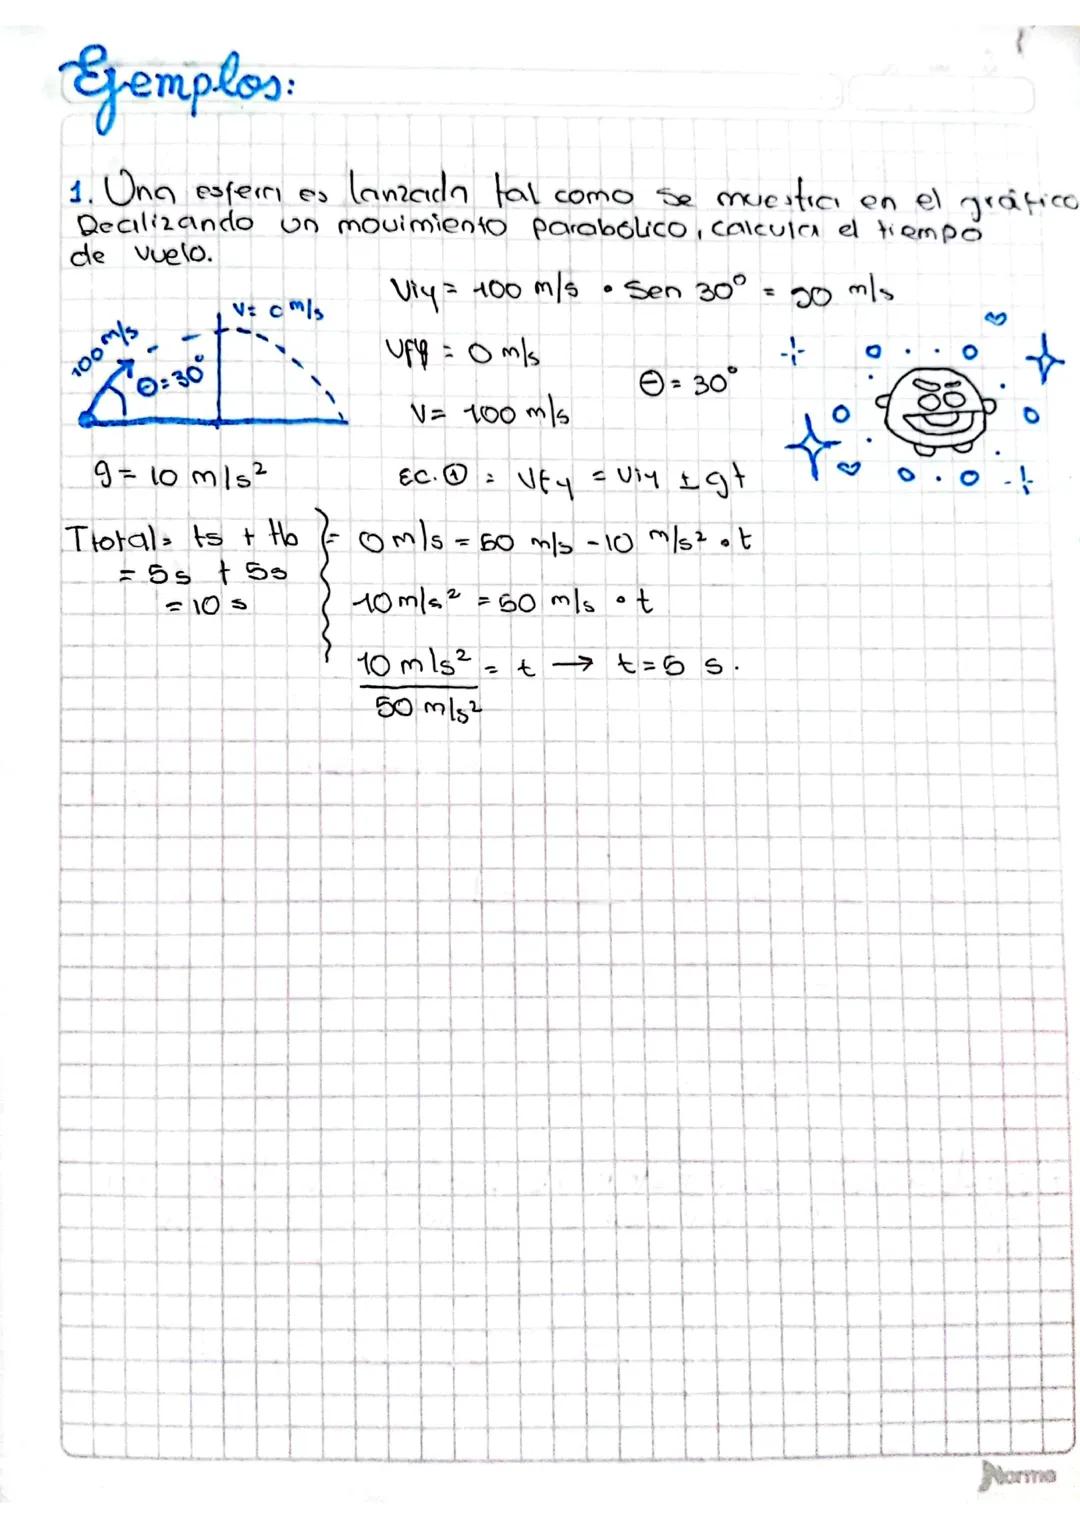 Ejemplos:
1. Una esfera es lanzada tal como se muestra en el gráfico
Realizando un movimiento parabólico, calcula el tiempo
de vuelo.
Viy = 100 m/s • Sen 30° = 50 m/s
V= 0 m/s
100 m/s
θ=30°
Vfy = 0 m/s
θ = 30°
V= 100 m/s
g= 10 m/s²
EC.① : Vfy = Viy ± gt
Ttotal= ts + tb
= 0 m/s = 50 m/s - 10 m/s² • t
= 5s + 5s
= 10 s
10 m/s² = 50 m/s • t
10 m/s² = t → t=5 s.
50 m/s²
Norma